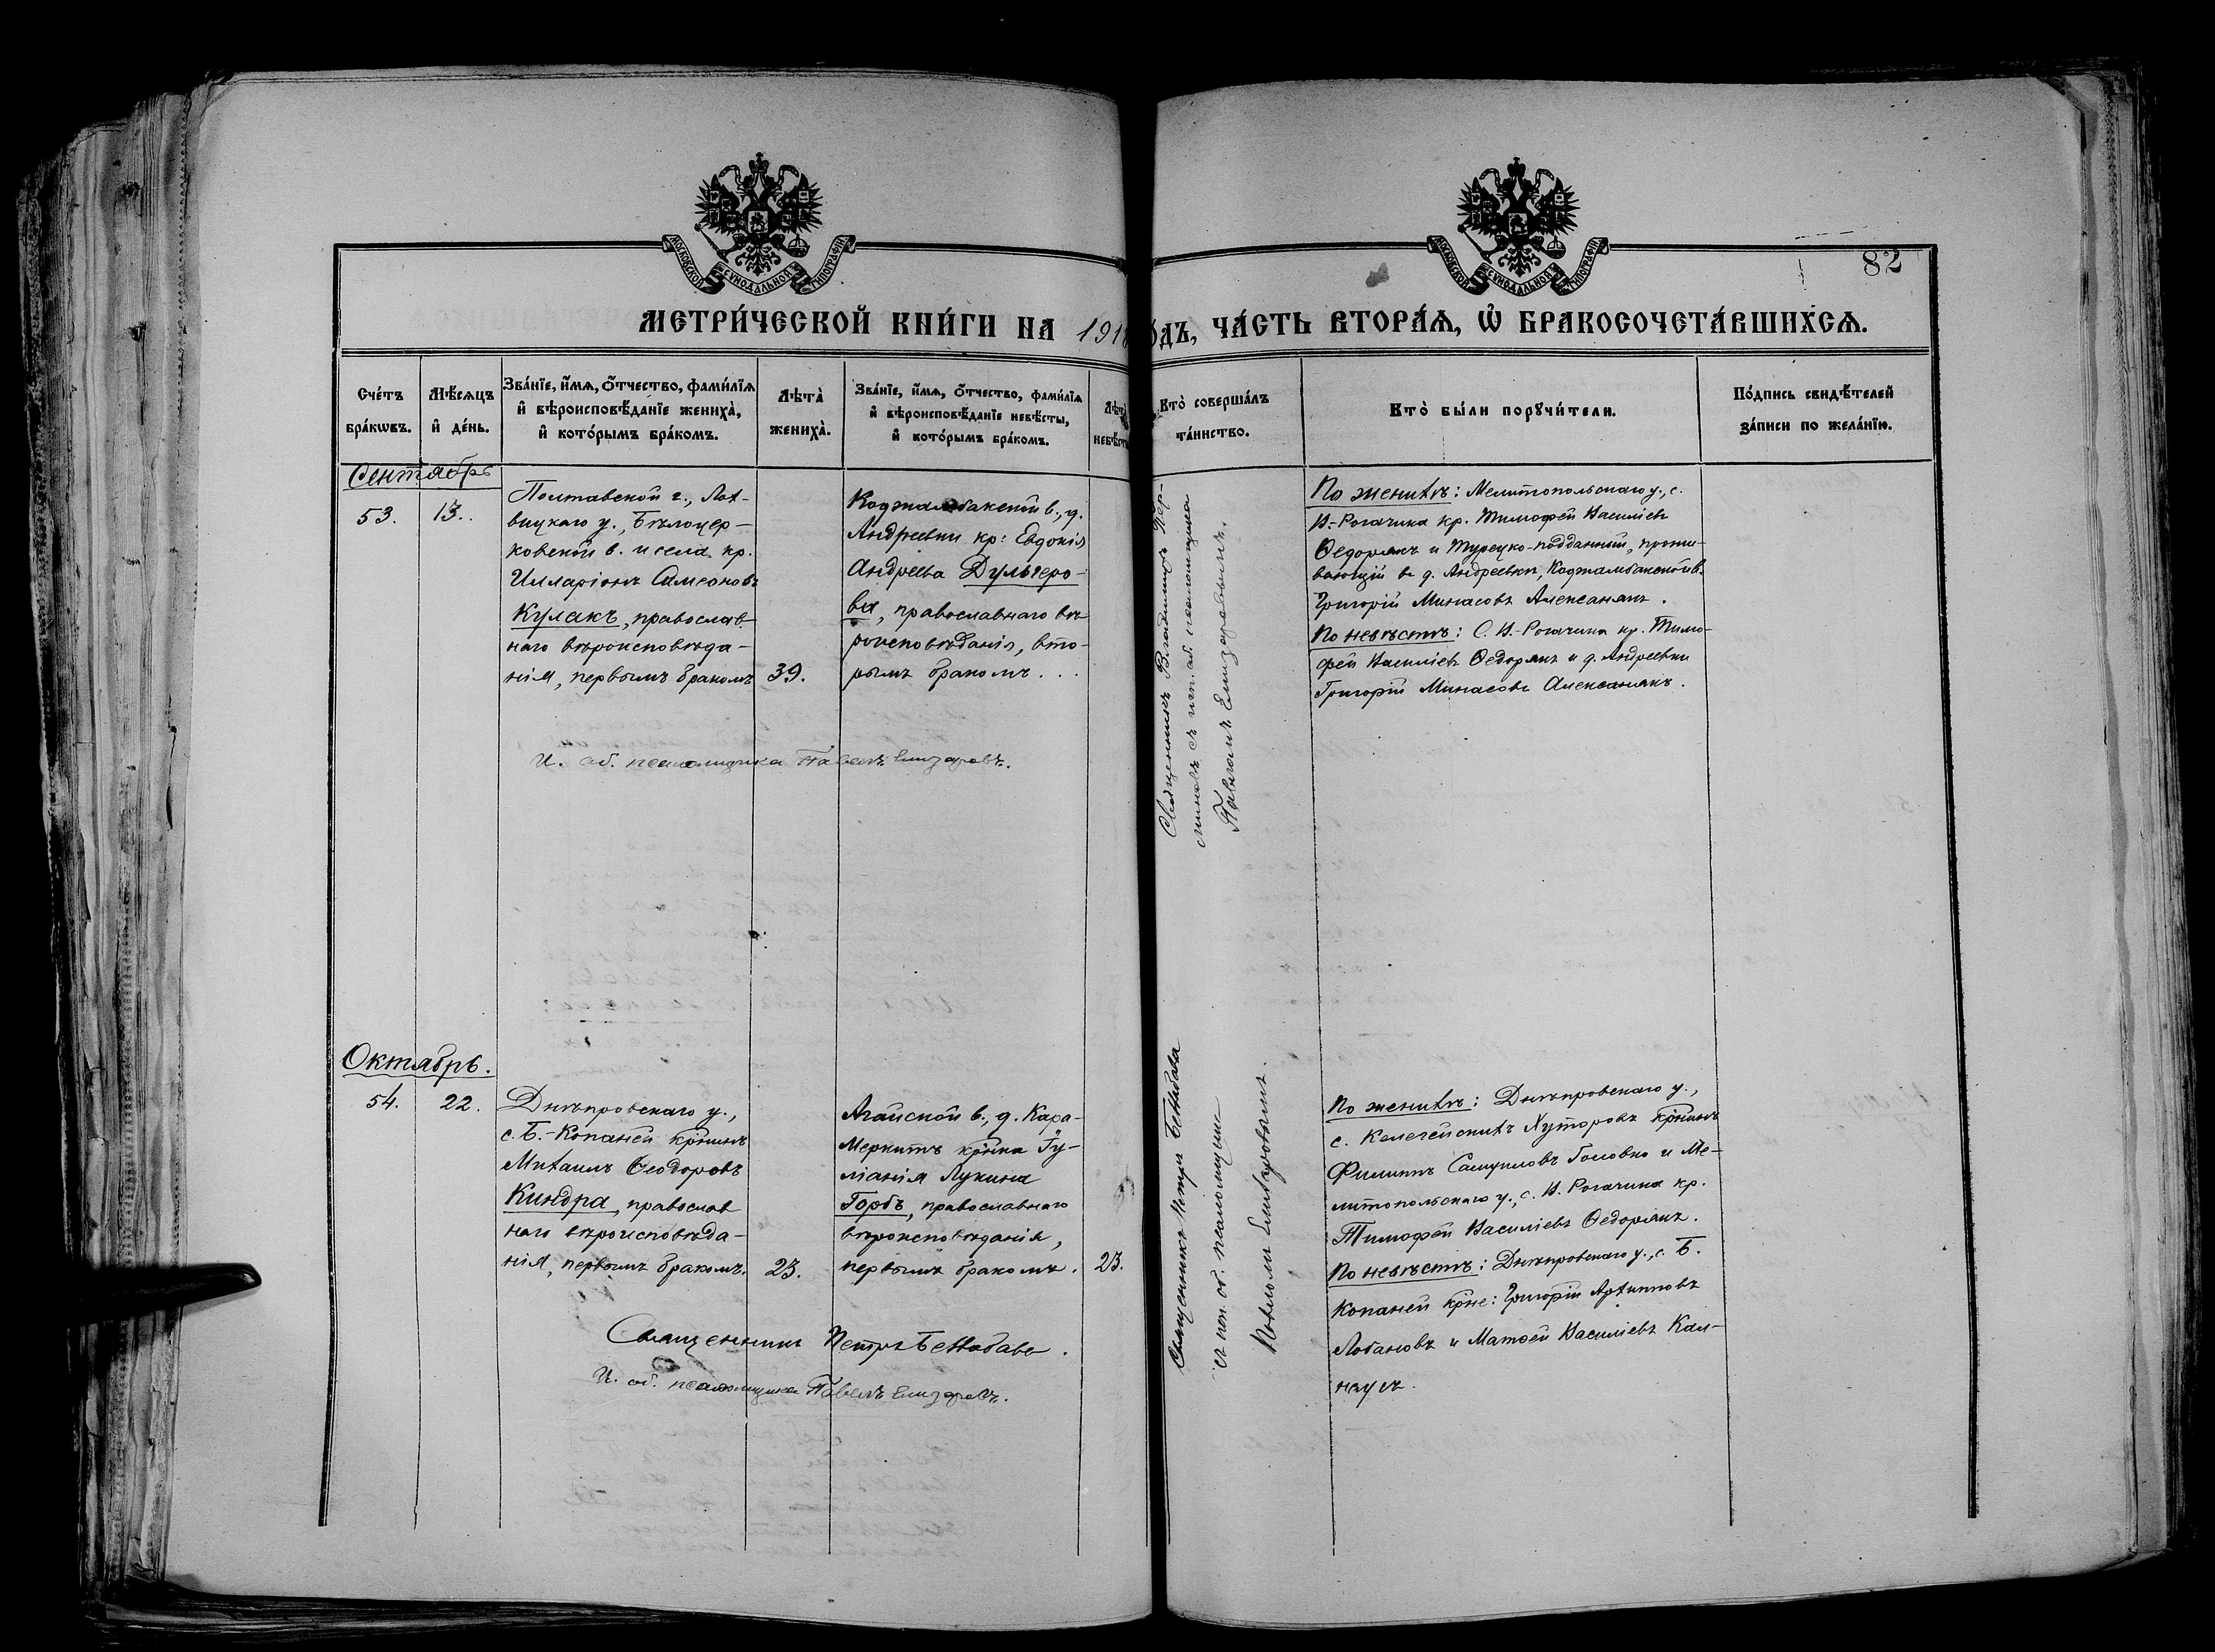 МОСКОВСКОЙ СѴНОДАЛЬНОЙ ТИПОГРАФІИ
МОСКОВСКОЙ СѴНОДАЛЬНОЙ ТИПОГРАФІИ
82
МЕТРИ́ЧЕСКОЙ КНИ́ГИ НА 1918 ГО́ДЪ, ЧА́СТЬ ВТОРА́Ѧ, Ѡ҆ БРАКОСОЧЕТА́ВШИХСѦ.
Сче́тъ бра́кѡвъ.
Мѣ́сѧцъ и҆ де́нь.
Зва́нїе, и҆́мѧ, ѻ҆́тчество, фами́лїѧ
и҆ вѣроисповѣ́данїе жениха̀,
и҆ кото́рымъ бра́комъ.
Лѣта̀ жениха̀.
Зва́нїе, и҆́мѧ, ѻ҆́тчество, фами́лїѧ
и҆ вѣроисповѣ́данїе невѣ́сты,
и҆ кото́рымъ бра́комъ.
Лѣта̀ невѣ́сты
Кто̀ соверша́лъ та́инство.
Кто̀ бы́ли порꙋчи́тели.
По́дпись свидѣ́телей
за́писи по жела́нїю.
Сентябрь
53. 13.
Полтавской г., Лох-
вицкаго у., Бѣлоцер-
ковской в. и села кр.
Илларіонъ Симеоновъ
Кулакъ, православ-
наго вѣроисповѣда-
нія, первымъ бракомъ
39.
Коджамбакской в., д.
Андреевки кр: Евдокія
Андреева Дульгеро-
ва, православнаго вѣ-
роисповѣданія, вто-
рымъ бракомъ...
Священникъ Владиміръ Пер-
миновъ съ исп. об. псаломщика
Павломъ Елизаровымъ.
По женихѣ: Мелитопольскаго у., с.
В.-Рогачика кр. Тимофей Василіевъ
Ѳедорянъ и Турецко-подданный, прожи-
вающій въ д. Андреевкѣ, Коджамбакской в.
Григорій Минасовъ Алексанянъ.
По невѣстѣ: С. В.-Рогачика кр. Тимо-
фей Василіевъ Ѳедорянъ и д. Андреевки
Григорій Минасовъ Алексанянъ.
И. об. псаломщика Павелъ Елизаровъ.
Октябрь.
54. 22.
Днѣпровскаго у.,
с. Б.-Копаней кр-нинъ
Михаилъ Ѳеодоровъ
Киндра, православ
наго вѣроисповѣда-
нія, первымъ бракомъ.
23.
Агайской в., д. Кара-
Меркитъ кр-нка Іу-
ліанія Лукина
Горбъ, православнаго
вѣроисповѣданія,
первымъ бракомъ.
23.
Священникъ Петръ
съ исп. об. псаломщика
Павломъ Елизаровымъ.
По женихѣ: Днѣпровскаго у.,
с. Келегейскихъ Хуторовъ кр-нинъ
Филиппъ Самуиловъ Головко и Ме-
литопольскаго у., с. В. Рогачика кр.
Тимофей Василіевъ Ѳедорянъ.
По невѣстѣ: Днѣпровскаго у., с. Б.
Копаней кр-не: Григорій Архиповъ
Лобановъ и Матѳей Василіевъ Кал-
Священникъ Петръ
И. об. псаломщика Павелъ Елизаровъ.